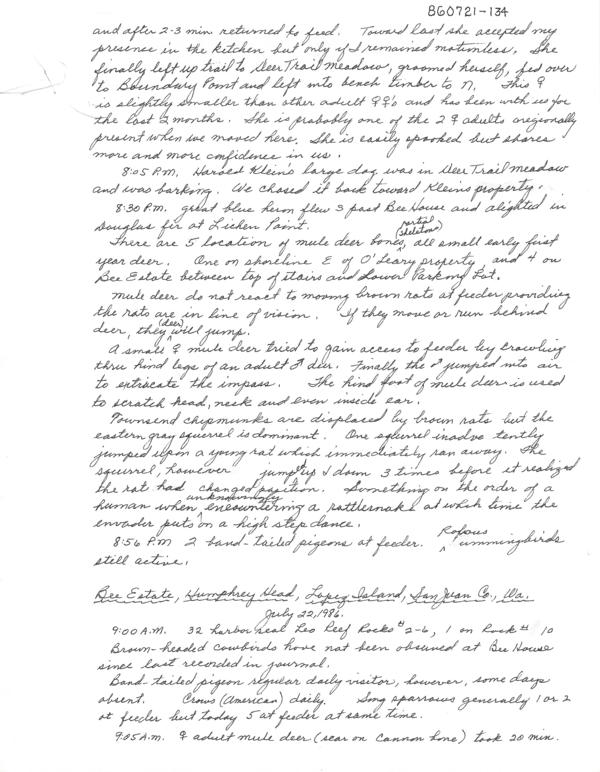 860721-134
and after 2-3 min returned to feed. Toward last she accepted my
presence in the kitchen but only if I remained motionless. She
finally left up trail to Deer Trail meadow, groomed herself, fed over
to Boundary Point and left into bench timber to N. This ♀
is slightly smaller than other adult ♀♀'s and has been with us for
the last 2 months. She is probably one of the 2 ♀ adults
present when we moved here. She is easily spooked but shares
more and more confidence in us.
8:05 P.M. Harold Klein's large dog was in Deer Trail meadow
and was barking. We chased it back toward Kleins property.
8:30 P.M. great blue heron flew 3 past Bee House and alighted in
Douglas fir at Lichen Point.
There are 5 location of mule deer bones (partial skeletons), all small early first
year deer. One on shoreline E of O'Leary property, and 4 on
Bee Estate between top of stairs and Lower Parking Lot.
Mule deer do not react to moving brown rats at feeder providing
the rats are in line of vision. If they move or run behind
deer, they (deer) will jump.
A small ♀ mule deer tried to gain access to feeder by crawling
thru hind legs of an adult ♂ deer. Finally the ♂ jumped into air
to extricate the impass. The hind foot of mule deer is used
to scratch head, neck and even inside ear.
Townsend chipmunks are displaced by brown rats but the
eastern gray squirrel is dominant. One squirrel inadvertently
jumped upon a young rat which immediately ran away. The
squirrel, however jumped up & down 3 times before it realized
the rat had changed position. Something on the order of a
human when unknowingly encountering a rattlesnake at which time the
invader puts on a high step dance.
8:56 P.M 2 band-tailed pigeons at feeder. Rufous hummingbirds
still active.
Bee Estate, Humphrey Head, Lopez Island, San Juan Co., Wa.
July 22, 1986.
9:00 A.M. 32 harbor seal Leo Reef Rocks #2-6, 1 on Rock # 10
Brown-headed cowbirds have not been observed at Bee House
since last recorded in journal.
Band-tailed pigeon regular daily visitor, however, some days
absent. Crows (American) daily. Song sparrows generally 1 or 2
at feeder but today 5 at feeder at same time.
9:05 A.M. ♀ adult mule deer (scar on cannon bone) took 20 min.